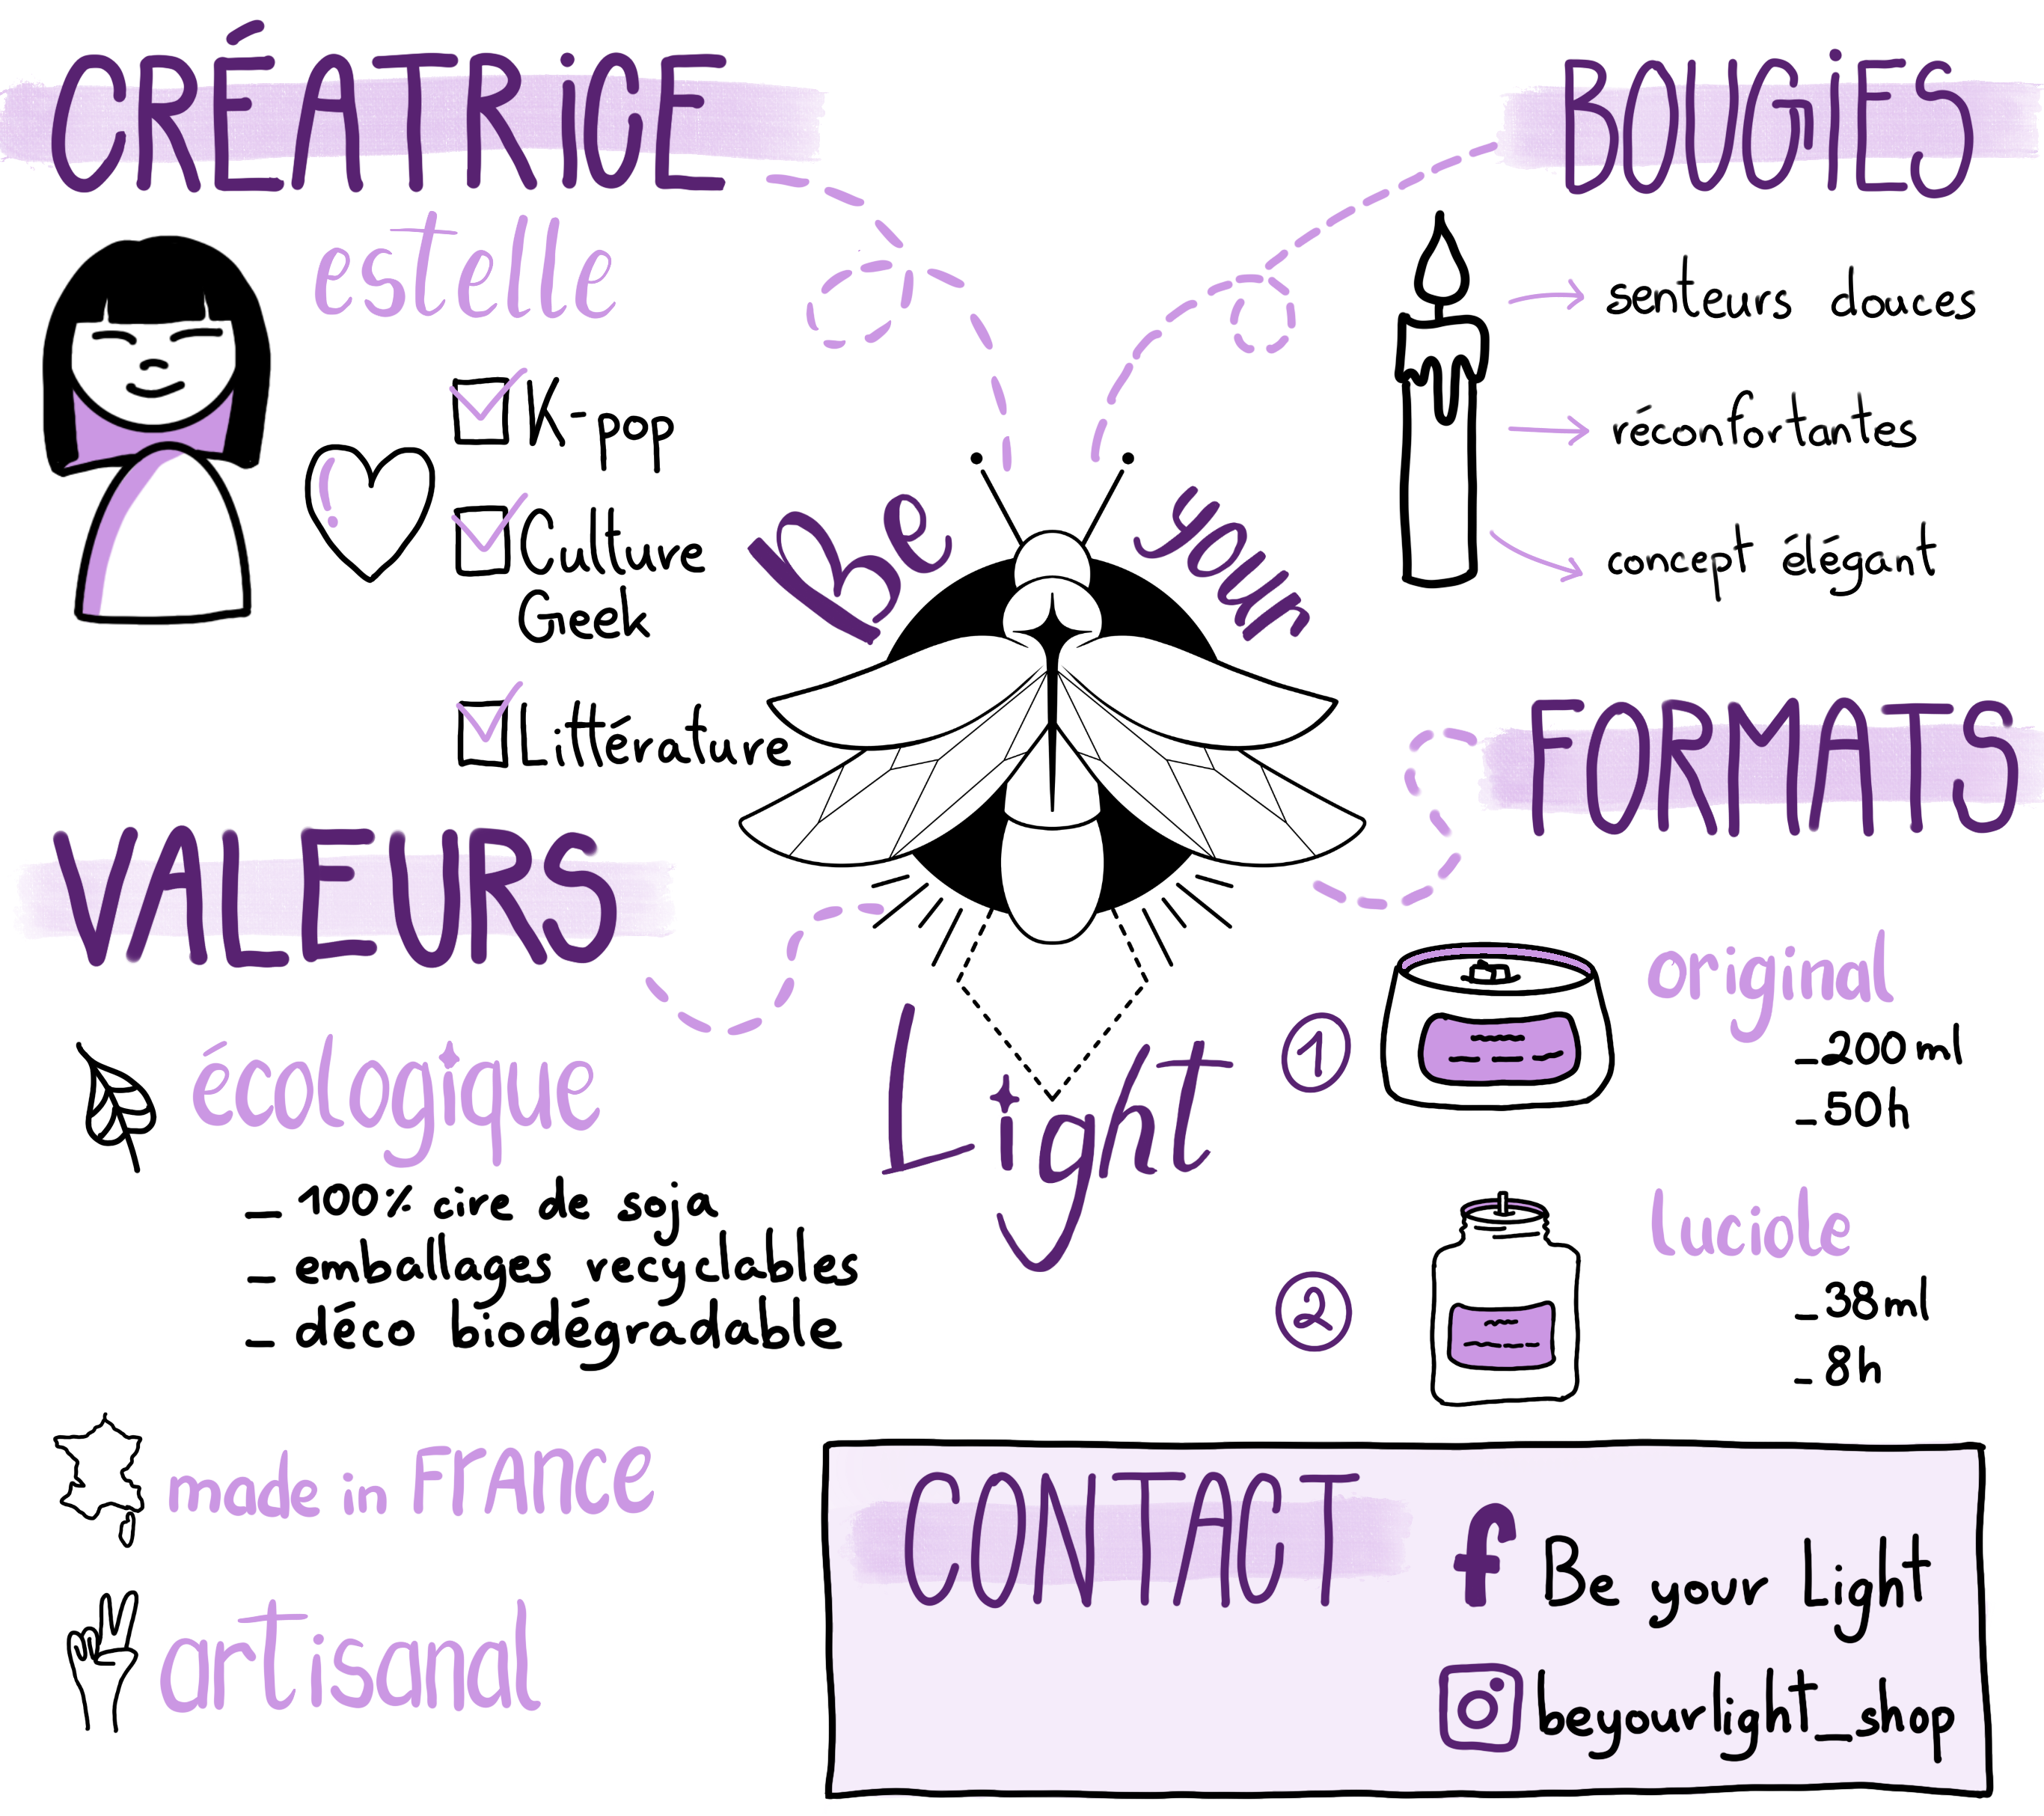 CRÉATRiCE
estelle
K-pop
Culture
Geek
Littérature
VALEURS
écologique
_ 100% cire de soja
_ emballages recyclables
_ déco biodégradable
made in FrANce
artisanal
Be your
Light
BOUGiES
senteurs douces
réconfortantes
concept élégant
FORMATS
1
original
_200ml
_50h
2
luciole
_38ml
_8h
CONTACT
f Be your Light
beyourlight_shop